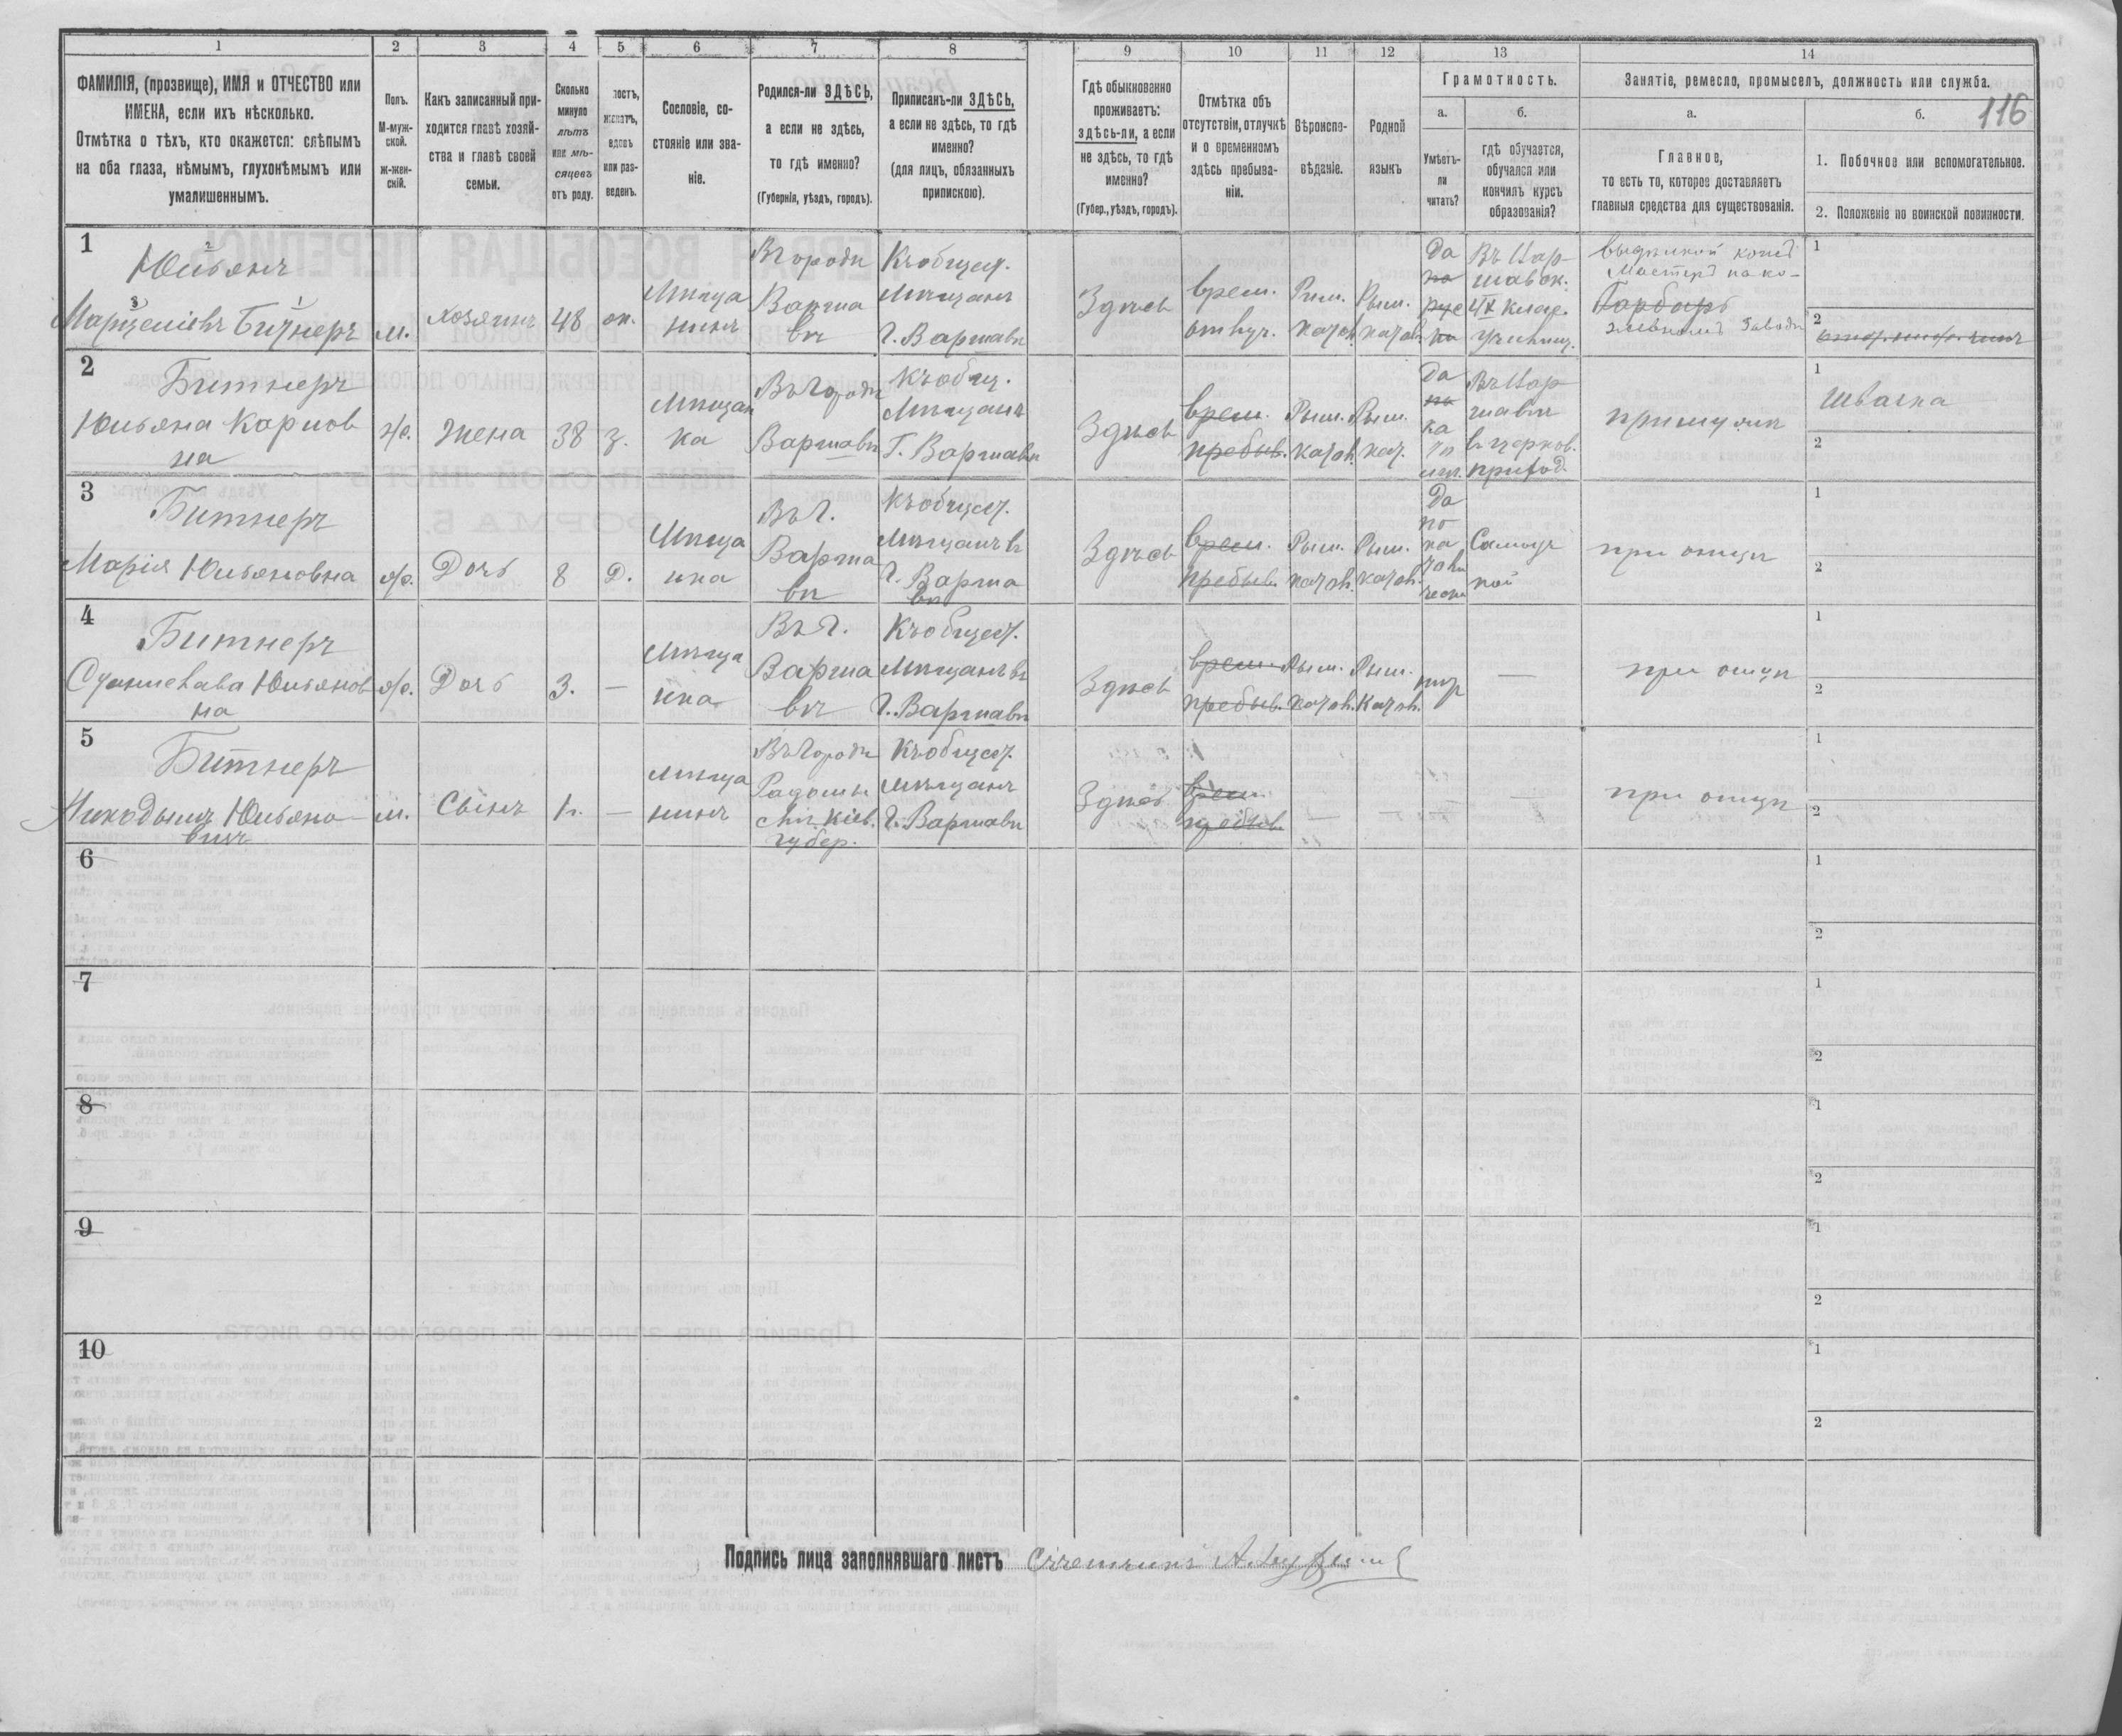 1 2 3 4 5 6 7 8 9 10 11 12 13 14
116
ФАМИЛІЯ, (прозвище), ИМЯ и ОТЧЕСТВО или
ИМЕНА, если ихъ нѣсколько.
Отмѣтка о тѣхъ, кто окажется: слѣпымъ
на оба глаза, нѣмымъ, глухонѣмымъ или
умалишеннымъ.
Полъ.
М-муж-
ской.
ж-жен-
скій.
Какъ записанный при-
ходится главѣ хозяй-
ства и главѣ своей
семьи.
Сколько
минуло
лѣтъ
или мѣ-
сяцевъ
отъ роду.
лостъ,
женатъ,
вдовъ
или раз-
веденъ.
Сословіе, со-
стояніе или зва-
ніе.
Родился-ли ЗДѢСЬ,
а если не здѣсь,
то гдѣ именно?
(Губернія, уѣздъ, городъ).
Приписанъ-ли ЗДѢСЬ,
а если не здѣсь, то гдѣ
именно?
(для лицъ, обязанныхъ
припискою).
Гдѣ обыкновенно
проживаетъ:
здѣсь-ли, а если
не здѣсь, то гдѣ
именно?
(Губер., уѣздъ, городъ).
Отмѣтка объ
отсутствіи, отлучкѣ
и о временномъ
здѣсь пребыва-
ніи.
Вѣроиспо-
вѣданіе.
Родной
языкъ
Грамотность.
а.
Умѣетъ-
ли
читать?
б.
гдѣ обучается,
обучался или
кончилъ курсъ
образованія?
Занятіе, ремесло, промыселъ, должность или служба.
а.
Главное,
то есть то, которое доставляетъ
главныя средства для существованія.
б.
1. Побочное или вспомогательное.
2. Положеніе по воинской повинности.
1
Юльянъ
Марцеліевъ Битнеръ
м.
хозяинъ
48
жн.
Мѣща
нинъ
Въ городѣ
Варша
вѣ
Къ общест.
Мѣщанъ
г. Варшавы
Здѣсь
врем.
отлуч.
Рим.
катол.
Рым.
катол.
Да
по
рус
ки
Въ Вар-
шавск.
класс.
училищ.
Мастеръ на ко-
Гарбарь
заводѣ
1
2
2
Битнеръ
Юльяна Карлов
на
ж.
Жена
38
з.
Мѣщан
ка
Въ городѣ
Варшавѣ
Къ общ.
Мѣщанъ
Г. Варшавы
Здѣсь
врем.
пребыв.
Рым.
катол.
Рым.
кат.
Да
по
ка
то
лич.
Въ Вар
шавѣ
въ церков.
приход.
при мужѣ
1
Швачка
2
3
Битнеръ
Марія Юльяновна
ж.
Дочь
8
Д.
Мѣща
нка
Въ г.
Варша
вѣ
Къ общест.
Мѣщанъ въ
г. Варша
вѣ
Здѣсь
врем.
пребыв.
Рым.
катол.
Рым.
катол.
Да
по
ка
толи
чески
Самоуч
кой
при отцѣ
1
2
4
Битнеръ
Станислава Юльянов
на
ж.
Дочь
3.
—
Мѣща
нка
Въ г.
Варша
вѣ
Къ общест.
Мѣщанъ въ
г. Варшавѣ
Здѣсь
врем.
пребыв.
Рым.
катол.
Рым.
катол.
нѣт
—
при отцѣ
1
2
5
Битнеръ
Никодымъ Юльяно-
вичъ
м.
Сынъ
—
Мѣща
нинъ
Въ городѣ
Радомы
слѣ Кіев.
губер.
Къ общест.
мѣщанъ
г. Варшавы
Здѣсь
врем.
пребыв.
—
—
—
—
при отцѣ
1
2
6
1
2
7
1
2
8
1
2
9
1
2
10
1
2
Подпись лица заполнявшаго листъ Счетчикъ